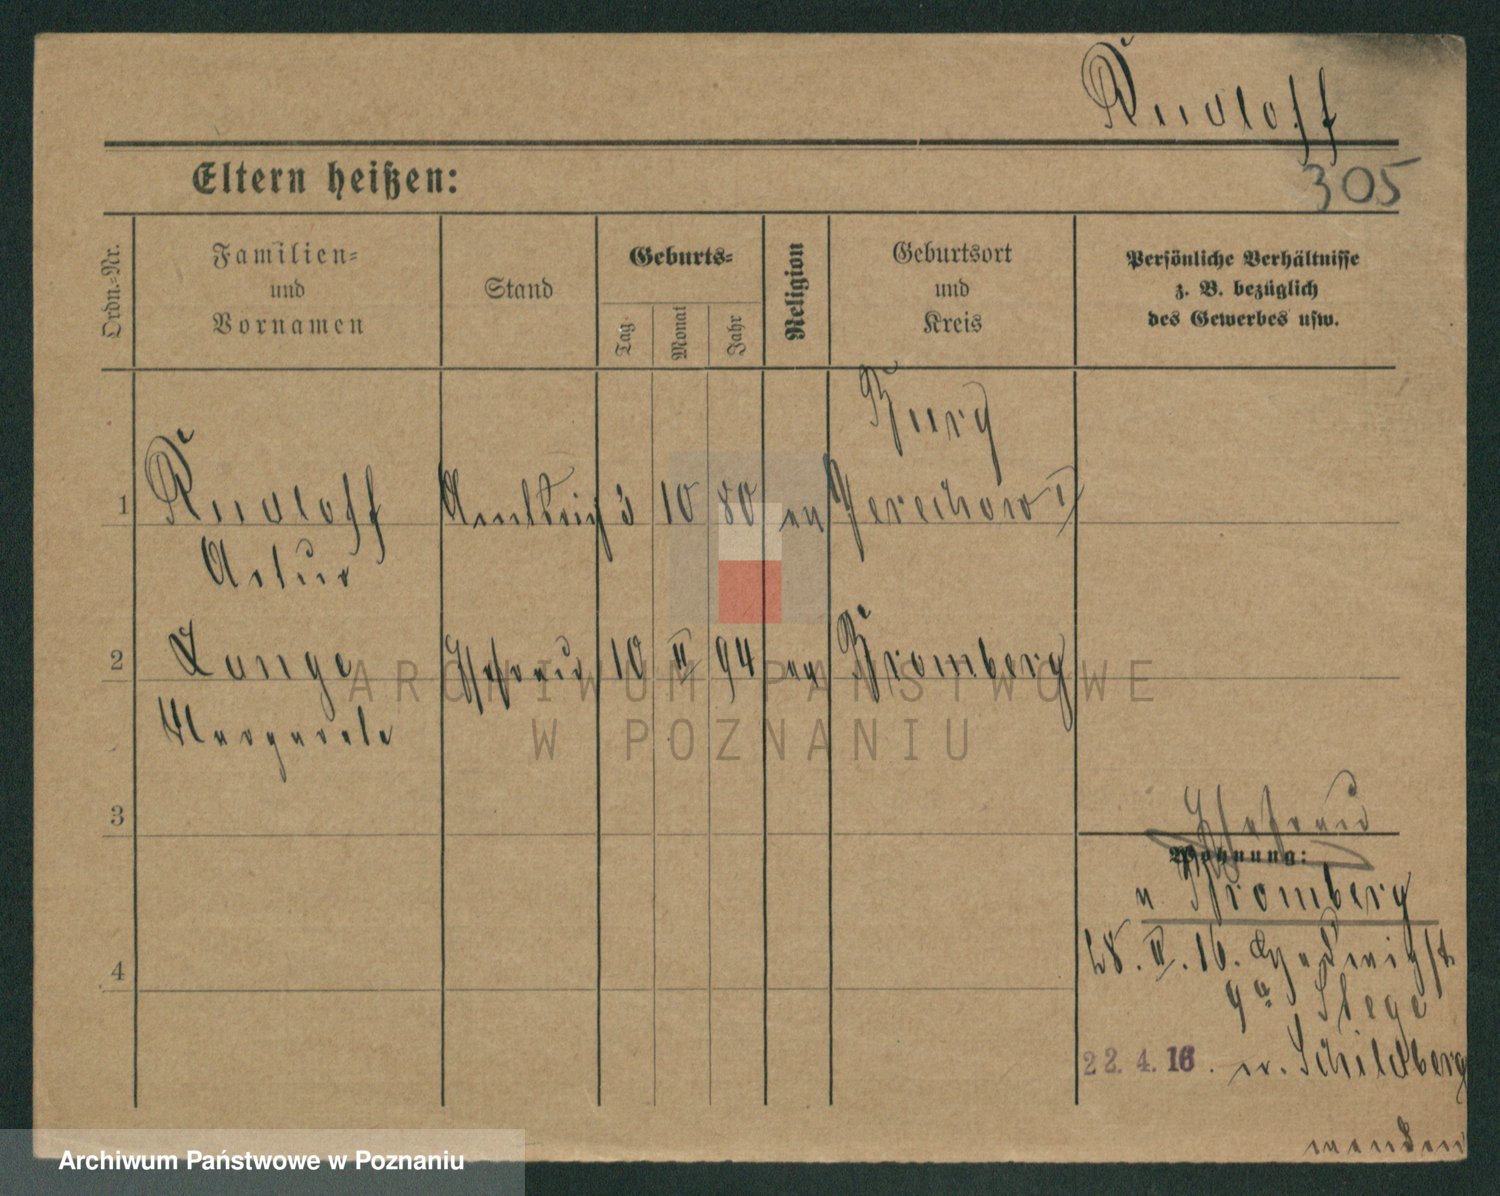 Rudloff
Eltern heißen:
305
Ordn.-Nr.
Familien-
und
Vornamen
Stand
Geburts-
Tag
Monat
Jahr
Religion
Geburtsort
und
Kreis
Persönliche Verhältnisse
z. B. bezüglich
des Gewerbes usw.
Burg
1 Rudloff 3 10 80 ev Jerichow I
Artur
2 Lange Ehefrau 10 II 94 ev Bromberg
Margarete
3
Ehefrau
Wohnung:
v. Bromberg
4
28. II. 16. Hedwigst.
9a Stege
22. 4. 16. n. Schildberg
wenden
ARCHIWUM PAŃSTWOWE
W POZNANIU
Archiwum Państwowe w Poznaniu